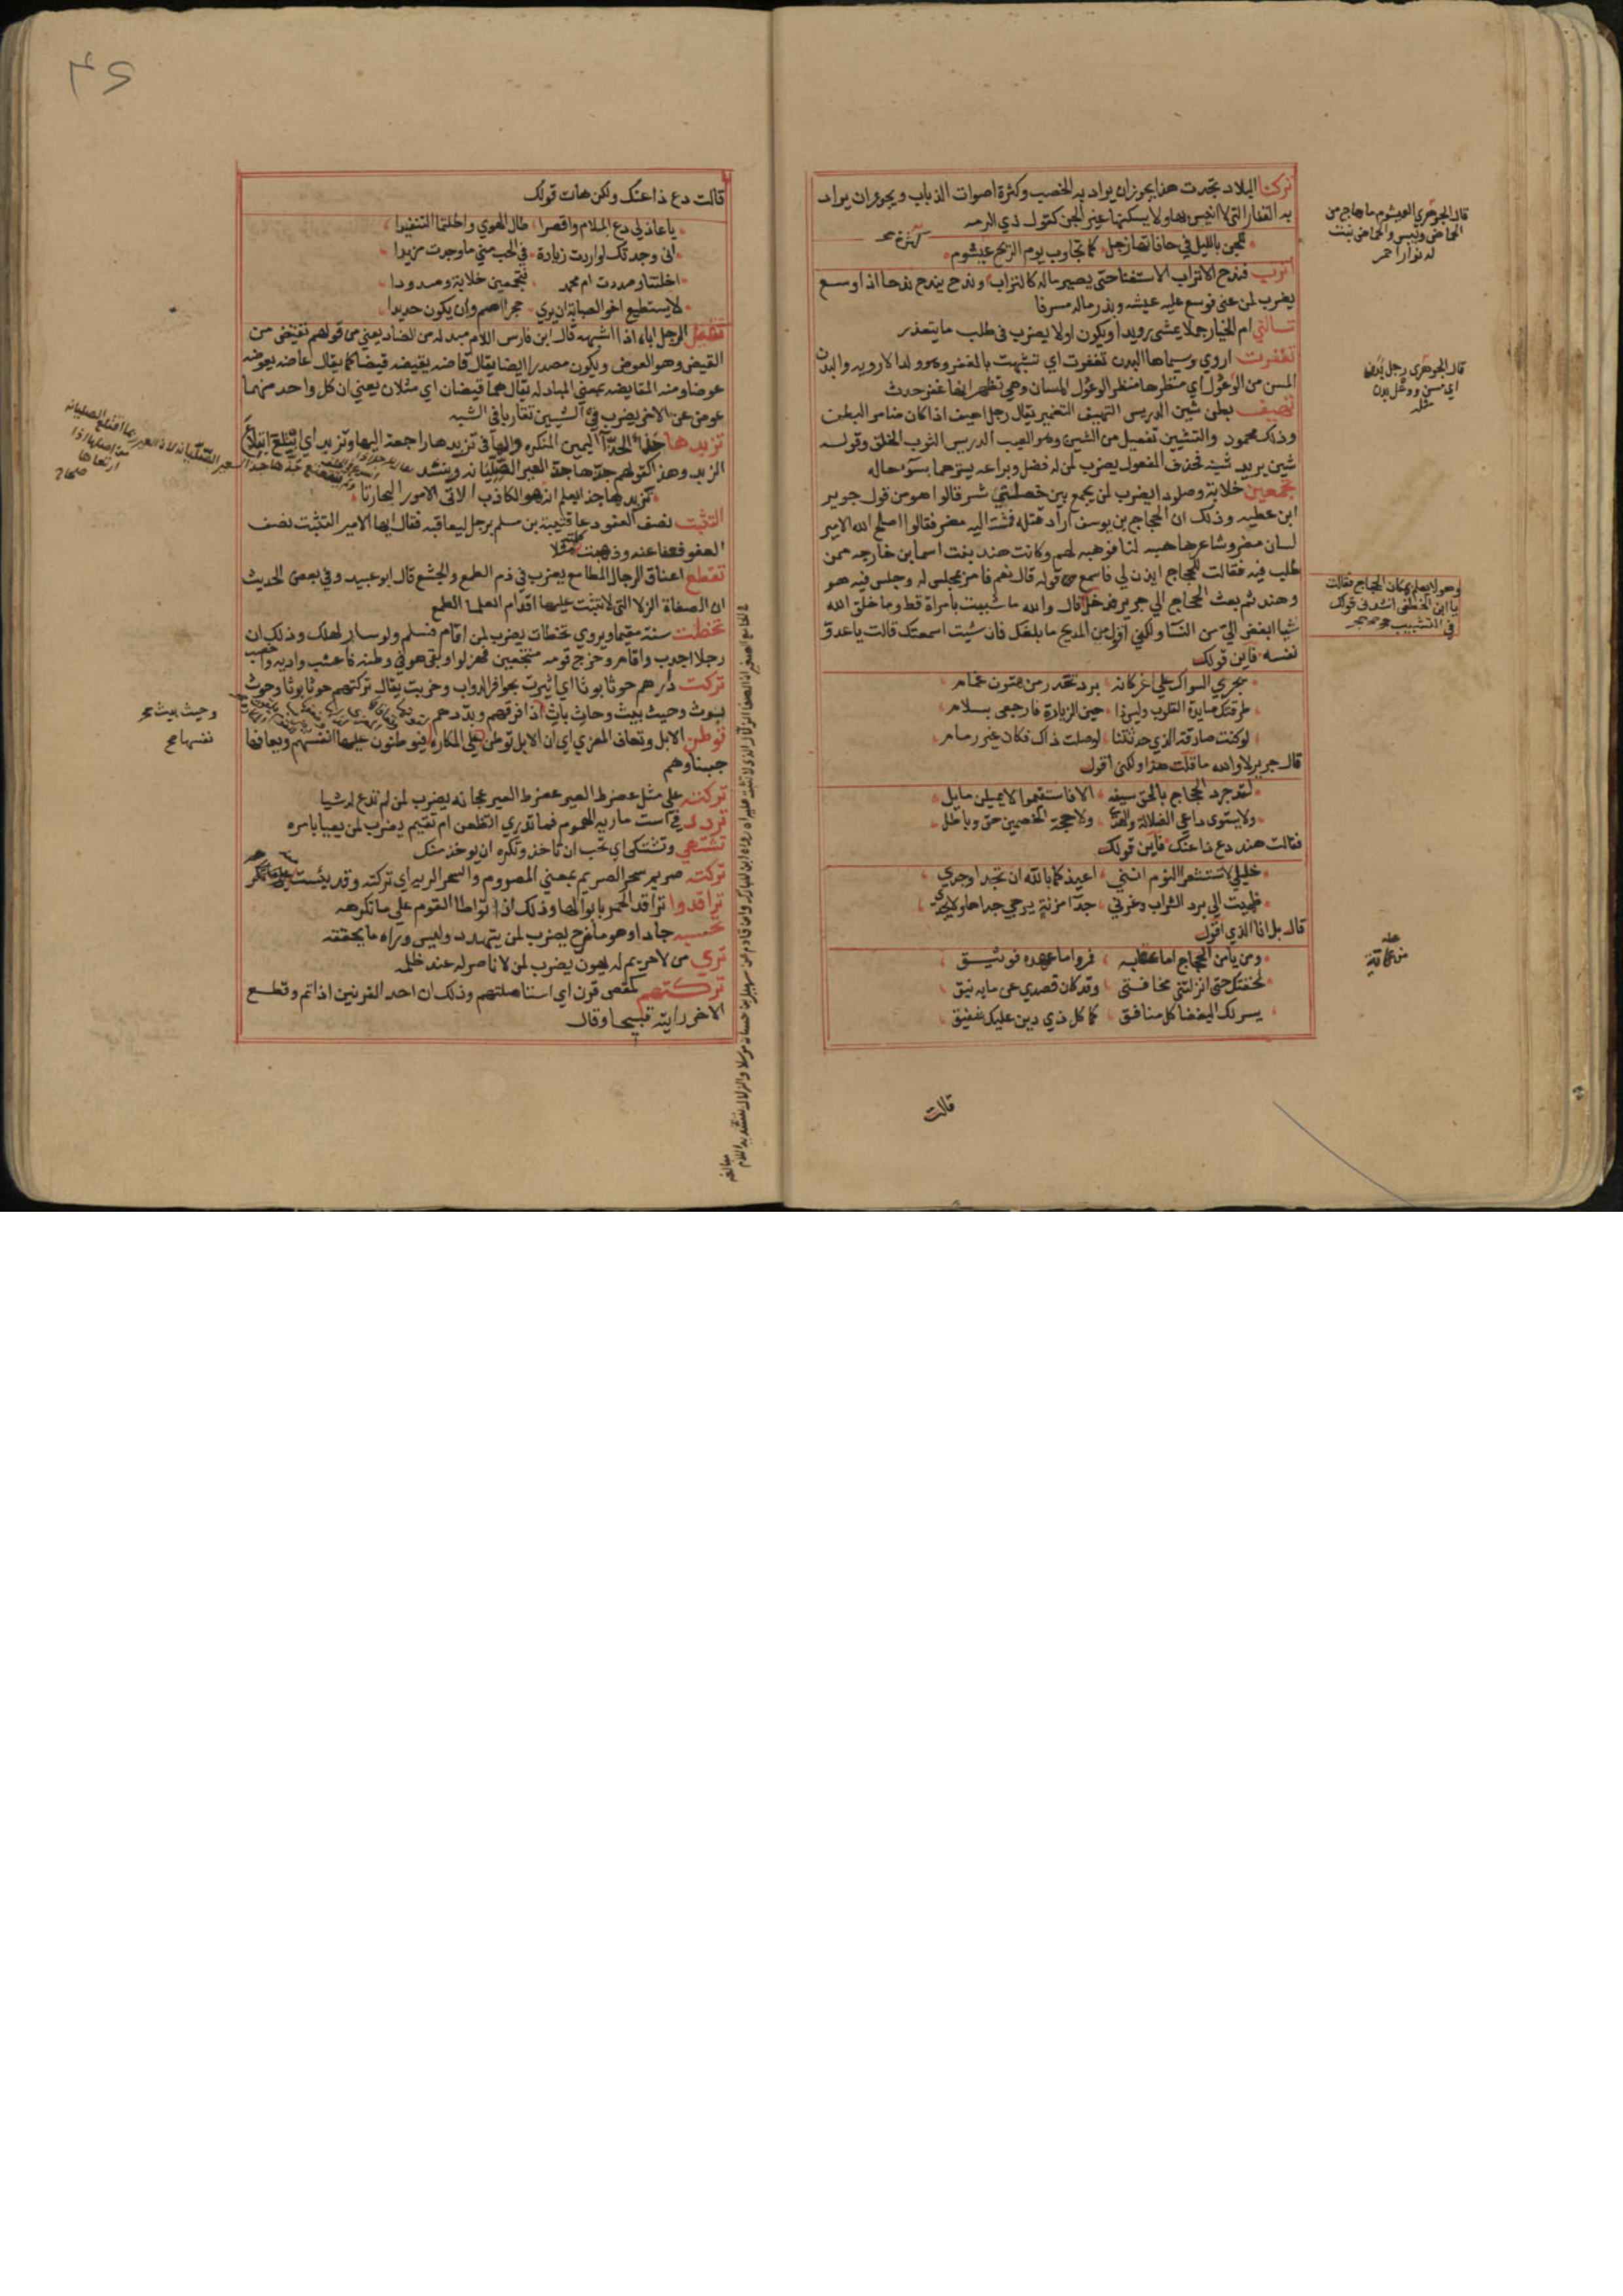 تركنا البلاد تحدث هذا يجوز ان يراد به الخصب وكثرة اصوات الذباب ويجوز ان يراد
به القفار التي لا انيس بها ولا يسكنها غير الجن كقول ذي الرمه
للجن بالليل في حافاتها زجل كما تجاوب يوم الريح عيشوم
اترب فندح الاتراب الاستغنا حتى يصير ماله كالتراب وندح يندح ندحا اذا وسع
يضرب لمن غنى فوسع عليه عيشه وبذر ماله مسرفا
تسالني ام الخيار جملا يمشي رويدا ويكون اولا يضرب في طلب ما يتعذر
تغفرت اروي وسيماها البدن تغفرت اي تشبهت بالغفر وهو ولد الاروية والبدن
المسن من الوعول اي منظرها منظر الوعول المسان وهي تظهر انها غفر حدث
بطن شين الدريس التهييف التضمير يقال رجل اهيف اذا كان ضامر البطن
وذلك محمود والتشيين تفعيل من الشين وهو العيب الدريس الثوب الخلق وقوله
شين يريد شينه فحذف المفعول يضرب لمن له فضل وبراعه يسترهما بسوء حاله
تجمعين خلابة وصدودا يضرب لمن يجمع بين خصلتي شر قالوا هو من قول جرير
ابن عطيه وذلك ان الحجاج بن يوسف اراد قتله فمشت اليه مضر فقالوا اصلح الله الامير
لسان مضر وشاعرها هبه لنا فوهبه لهم وكانت هند بنت اسما ابن خارجه ممن
طلب فيه فقالت للحجاج ايذن لي فاسمع من قوله قال نعم فامر بمجلس له وجلس فيه هو
وهند ثم بعث الحجاج الي جرير فدخل قال والله ما شببت بامراة قط وما خلق الله
شيا ابغض الي من النسا ولكني اقول من المديح ما بلغك فان شيت اسمعتك قالت يا عدو
نفسه فاين قولك
يجري السواك على اغر كانه برد تحدر من متون غمام
طرقتك صايدة القلوب وليس ذا حين الزيارة فارجعي بسلام
لو كنت صادقة الذي حدثتنا لوصلت ذاك فكان غير رمام
قال جرير لا والله ما قلت هذا ولكني اقول
لقد جرد الحجاج بالحق سيفه الا فاستقيموا لا يميلن مايل
ولا يستوى داعي الضلالة والهدى ولا حجة الخصمين حق وباطل
فقالت هند دع ذا عنك فاين قولك
خليلي لا تستشعرا النوم انني اعيذكما بالله ان تجدا وجدي
ظميت الي برد الشراب وغرني جدا مزنة يرجي جداها ولا يجدي
قال بل انا الذي اقول
ومن يامن الحجاج اما عقابه فمر واما عهده فوثيق
لخفتك حتى انزلتني مخافتي وقد كان قصدي عمايه نيق
يسر لك البغضا كل منافق كما كل ذي دين عليك شفيق
قالت
قال الجوهري العيشوم ما هاج من
الحماض ويبس والحماض نبت
له نوار احمر
قال الجوهري رجل بدن
اي مسن ووعل بدن
مثله
وهو لا يعلم بمكان الحجاج فقالت
يا ابن الخطفى انشدني قولك
في التشبيب
قالت دع ذا عنك ولكن هات قولك
يا عاذلي دع الملام واقصرا طال الهوي واطلتما التفنيدا
اني وجدتك لو اردت زيادة في الحب مني ما وجدت مزيدا
اخلبتنا وصددت ام محمد افتجمعين خلابة وصدودا
لا يستطيع اخو الصبابة ان يري حجرا اصم وان يكون حديدا
الرجل اباه اذا اشبهه قال ابن فارس اللام مبدله من الضاد يعني من قولهم تقيض من
القيض وهو العوض ويكون مصدرا ايضا يقال قاضه يقيضه قيضا كما يقال عاضه يعوضه
عوضا ومنه المقايضه بمعني المبادله يقال هما قيضان اي مثلان يعني ان كل واحد منهما
عوض عن الاخر يضرب في الشيين تقاربا في الشبه
تزبدها حذا الحذا اليمين المنكره والها في تزبدها راجعة اليها وتزبد اي ابتلع ابتلاع
الزبد وهذا كقولهم جذها جذ العير الصليانه وينشد
تزبدها حذا يعلم انه هو الكاذب الاتي الامور البجارتا
التثبت نصف العفو دعا قتيبة بن مسلم برجل ليعاقبه فقال ايها الامير التثبت نصف
العفو فعفا عنه وذهبت مثلا
تقطع اعناق الرجال المطامع يضرب في ذم الطمع والجشع قال ابو عبيد وفي بعض الحديث
ان الصفاة الزلا التي لا تثبت عليها اقدام العلما الطمع
تخطت سنة مقيما ويروي تخطات يضرب لمن اقام فسلم ولو سار لهلك وذلك ان
رجلا اجدب واقام وخرج قومه منتجعين فهزلوا وبقي هو في وطنه فاعشب واديه واخصب
تركت دارهم حوثا بوثا اي اثيرت بحوافر الدواب وخربت يقال تركتهم حوثا بوثا وحوث
بوث وحيث بيث وحاث باث اذا فرقهم وبددهم
توطن الابل وتعاف المعزي اي ان الابل توطن علي المكاره فيوطنون عليها انفسهم ويعافها
جبناوهم
تركته على مثل عضرط العير عضرط العير عجانه يضرب لمن لم تدع له شيا
تردد في است ماريه الهموم فما تدري اتظعن ام تقيم يضرب لمن يعيا بامره
تشتهي وتشتكي اي تحب ان تاخذ وتكره ان يوخذ منك
تركته صريم سحر الصريم بمعني المصروم والسحر الريه اي تركته وقد يئست
ترافدوا ترافد الحمر بابوالها وذلك اذا تواطا القوم على ما تكرهه
تحسبه جادا وهو مازح يضرب لمن يتهدد وليس وراه ما يحققه
تري من لا حريم له يهون يضرب لمن لا ناصر له عند ظلمه
تركتهم كمقص قرن اي استاصلتهم وذلك ان احد القرنين اذا تم وقطع
الاخر رايته قبيحا وقال
وحيث بيث